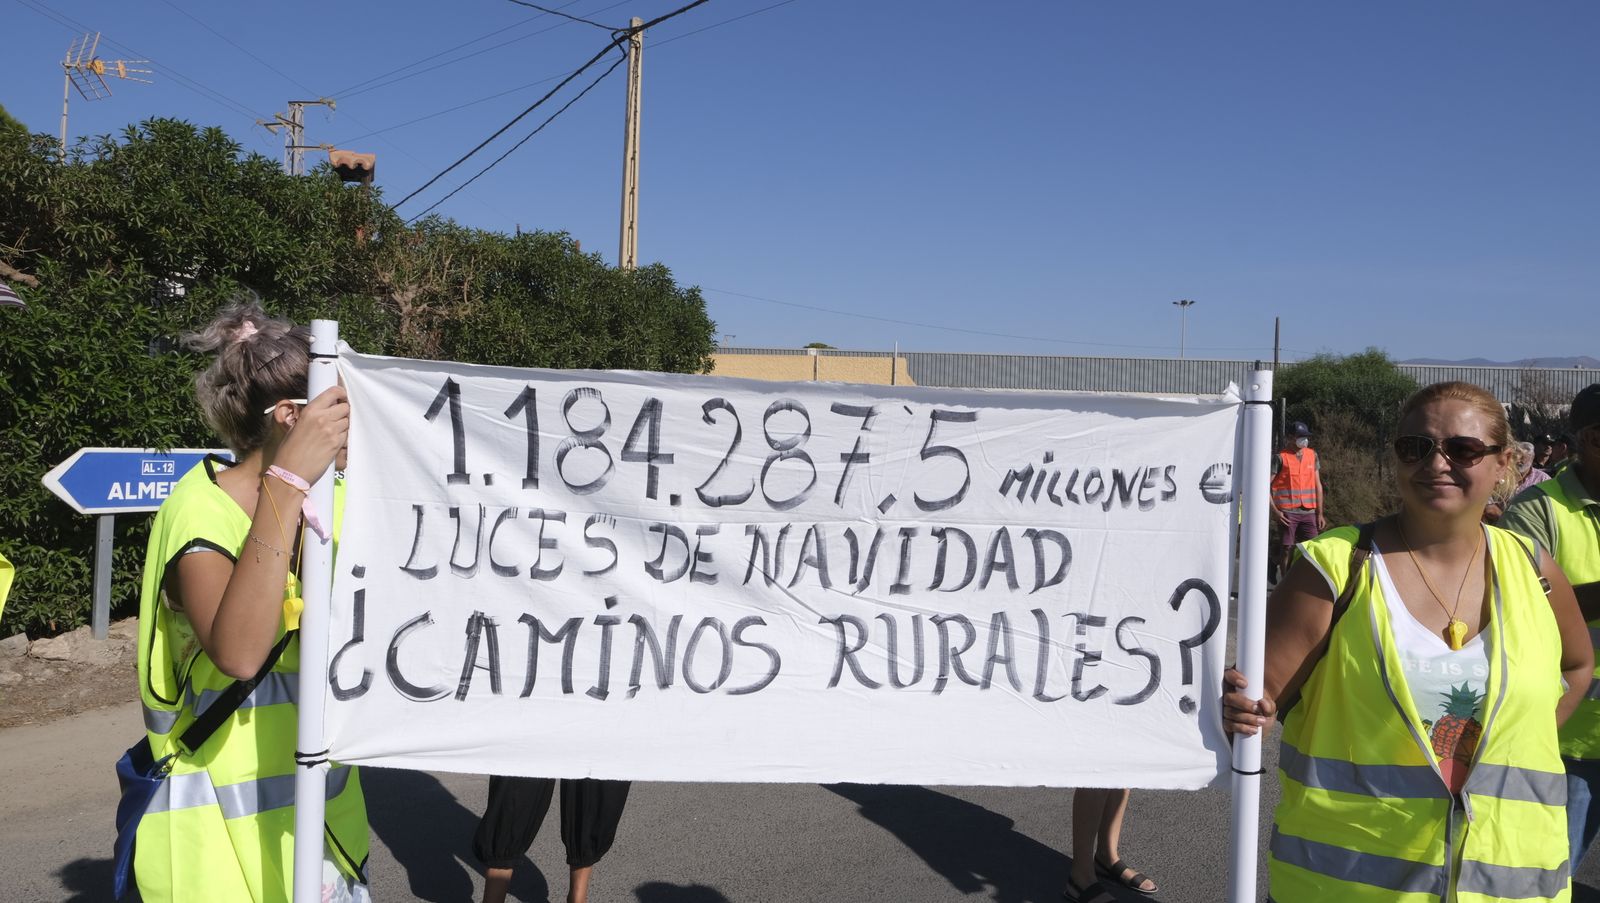 AL-12
ALMER
1.184.287,5 MILLONES €
LUCES DE NAVIDAD
¿CAMINOS RURALES?